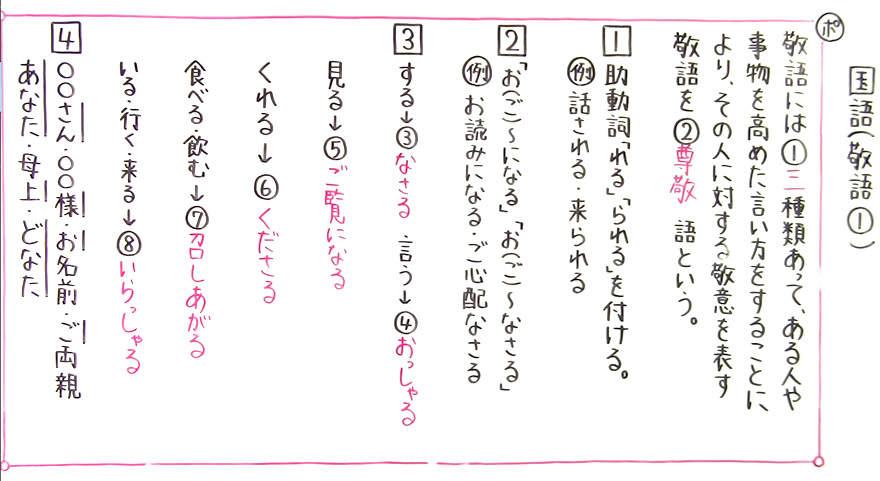 国語(敬語①)
ポ
敬語には①三種類あって、ある人や
事物を高めた言い方をすることに、
より、その人に対する敬意を表す
敬語を②尊敬 語という。
1 助動詞「れる」「られる」を付ける。
例 話される・来られる
2 「お(ご)〜になる」「お(ご)〜なさる」
例 お読みになる・ご心配なさる
3 する→③なさる 言う→④おっしゃる
見る→⑤ご覧になる
くれる→⑥くださる
食べる・飲む→⑦召しあがる
いる・行く・来る→⑧いらっしゃる
4 〇〇さん・〇〇様・お名前・ご両親
あなた・母上・どなた